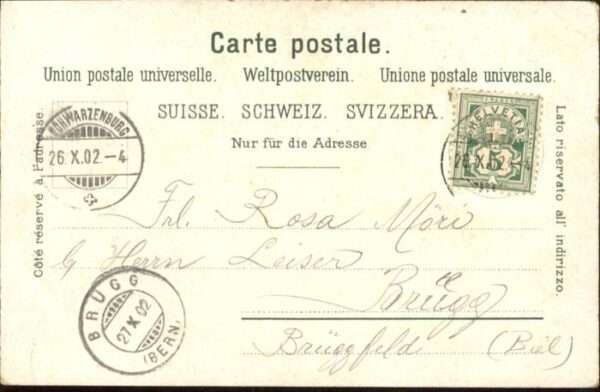 Carte postale.
Union postale universelle. Weltpostverein. Unione postale universale.
SUISSE. SCHWEIZ. SVIZZERA.
Nur für die Adresse
Côté réservé à l'adresse.
Lato riservato all' indirizzo.
SCHWARZENBURG
26.X.02.-4
HELVETIA
5
26.X.02
Frl. Rosa Möri
Herrn Leiser
Brügg
Brüggfelds (Biel)
BRÜGG
27.X.02
(BERN)